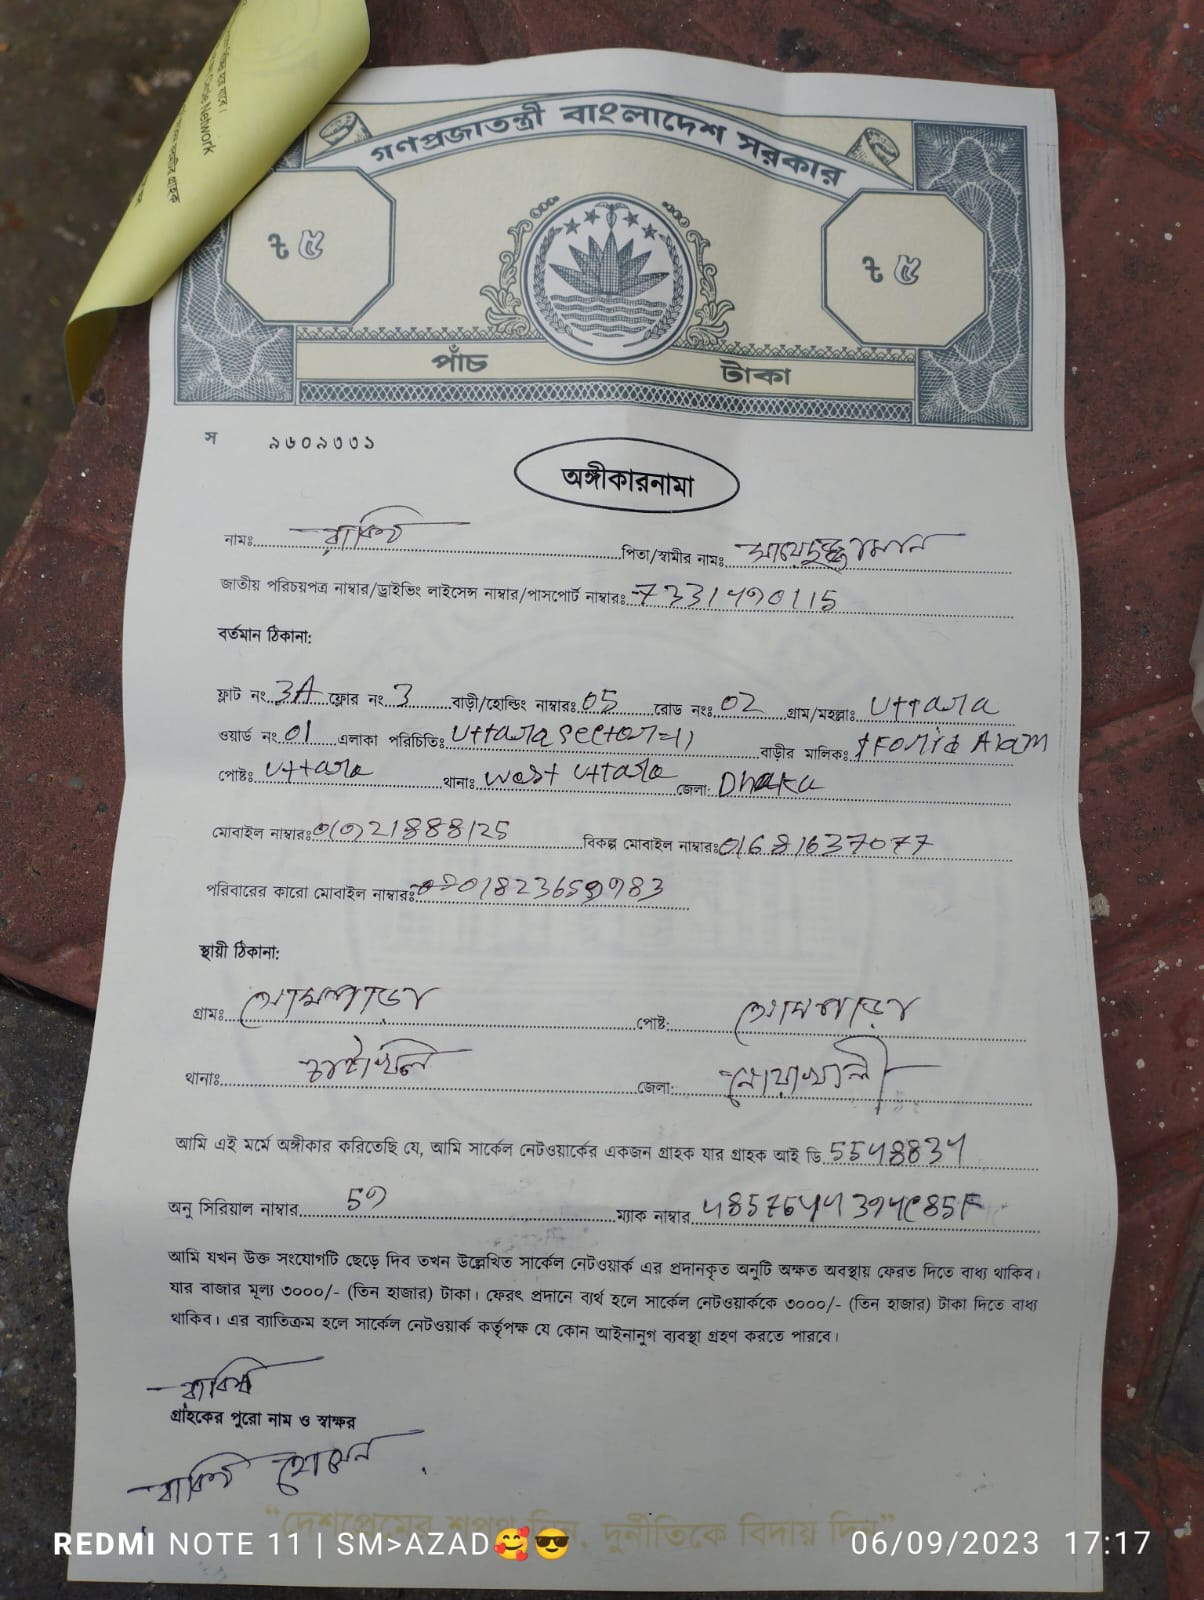 Network
গণপ্রজাতন্ত্রী বাংলাদেশ সরকার
ট ৫
ট ৫
পাঁচ টাকা
স ৯৬০৯৩৩১
অঙ্গীকারনামা
নামঃ রাকিব পিতা/স্বামীর নামঃ
জাতীয় পরিচয়পত্র নাম্বার/ড্রাইভিং লাইসেন্স নাম্বার/পাসপোর্ট নাম্বারঃ 7331490115
বর্তমান ঠিকানা:
ফ্লাট নং 3A ফ্লোর নং 3 বাড়ী/হোল্ডিং নাম্বারঃ 05 রোড নংঃ 02 গ্রাম/মহল্লাঃ Uttara
ওয়ার্ড নং 01 এলাকা পরিচিতিঃ Uttara Sector-11 বাড়ীর মালিকঃ Forid Alam
পোষ্টঃ Uttara থানাঃ West Uttara জেলা: Dhaka
মোবাইল নাম্বারঃ 01721888125 বিকল্প মোবাইল নাম্বারঃ 01681637077
পরিবারের কারো মোবাইল নাম্বারঃ
স্থায়ী ঠিকানা:
গ্রামঃ পোষ্ট:
থানাঃ চাটখিল জেলা: নোয়াখালী
আমি এই মর্মে অঙ্গীকার করিতেছি যে, আমি সার্কেল নেটওয়ার্কের একজন গ্রাহক যার গ্রাহক আই ডি 5548834
অনু সিরিয়াল নাম্বার 59 ম্যাক নাম্বার 48576544394C85F
আমি যখন উক্ত সংযোগটি ছেড়ে দিব তখন উল্লেখিত সার্কেল নেটওয়ার্ক এর প্রদানকৃত অনুটি অক্ষত অবস্থায় ফেরত দিতে বাধ্য থাকিব।
যার বাজার মূল্য ৩০০০/- (তিন হাজার) টাকা। ফেরৎ প্রদানে ব্যর্থ হলে সার্কেল নেটওয়ার্ককে ৩০০০/- (তিন হাজার) টাকা দিতে বাধ্য
থাকিব। এর ব্যাতিক্রম হলে সার্কেল নেটওয়ার্ক কর্তৃপক্ষ যে কোন আইনানুগ ব্যবস্থা গ্রহণ করতে পারবে।
রাকিব
গ্রাহকের পুরো নাম ও স্বাক্ষর
রাকিব হোসেন
“দেশপ্রেমের শপথ নিন, দুর্নীতিকে বিদায় দিন”
REDMI NOTE 11 | SM>AZAD🥰😎 06/09/2023 17:17